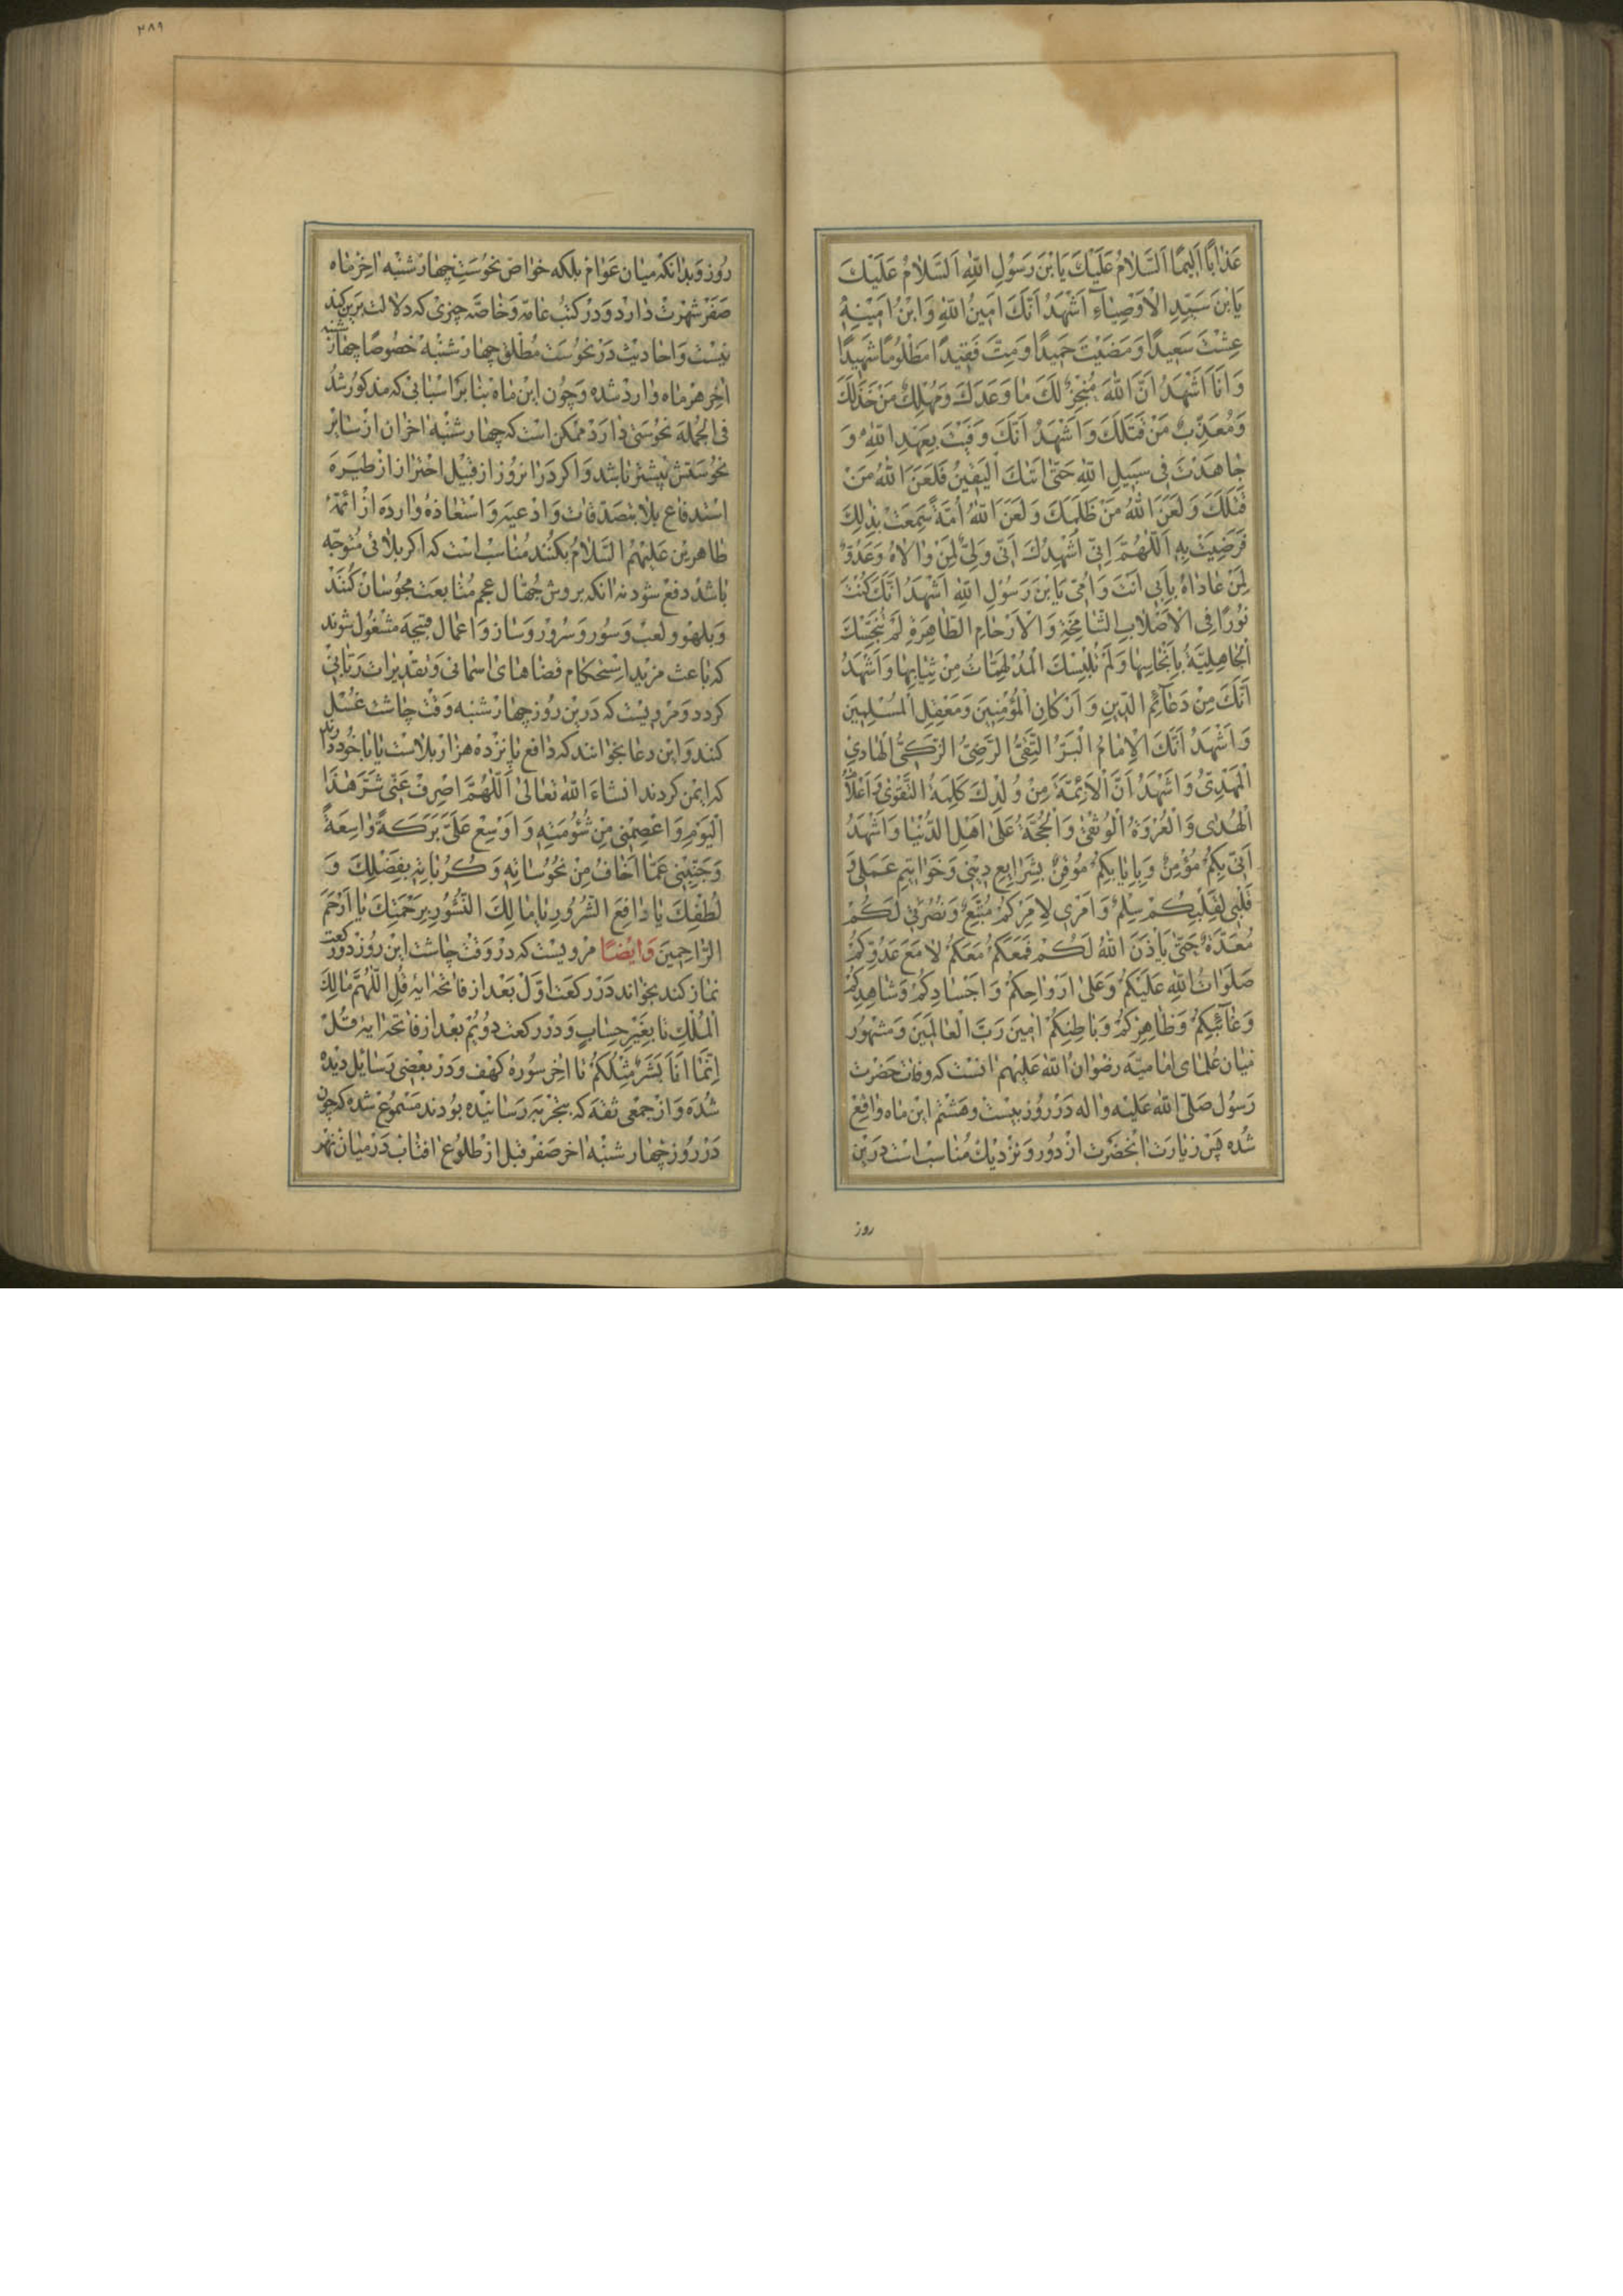 عَذَابًا اَلِيمًا اَلسَّلَامُ عَلَيْكَ يَا بْنَ رَسُولِ اللّٰهِ اَلسَّلَامُ عَلَيْكَ
يَا بْنَ سَيِّدِ الْاَوْصِيَاءِ اَشْهَدُ اَنَّكَ اَمِينُ اللّٰهِ وَابْنُ اَمِينِهِ
عِشْتَ سَعِيدًا وَمَضَيْتَ حَمِيدًا وَمِتَّ فَقِيدًا مَظْلُومًا شَهِيدًا
وَاَنَا اَشْهَدُ اَنَّ اللّٰهَ مُنْجِزٌ لَكَ مَا وَعَدَكَ وَمُهْلِكٌ مَنْ خَذَلَكَ
وَمُعَذِّبٌ مَنْ قَتَلَكَ وَاَشْهَدُ اَنَّكَ وَفَيْتَ بِعَهْدِ اللّٰهِ وَ
جَاهَدْتَ فِى سَبِيلِ اللّٰهِ حَتّٰى اَتٰىكَ الْيَقِينُ فَلَعَنَ اللّٰهُ مَنْ
قَتَلَكَ وَلَعَنَ اللّٰهُ مَنْ ظَلَمَكَ وَلَعَنَ اللّٰهُ اُمَّةً سَمِعَتْ بِذٰلِكَ
فَرَضِيَتْ بِهِ اَللّٰهُمَّ اِنِّى اُشْهِدُكَ اَنِّى وَلِىٌّ لِمَنْ وَالَاهُ وَعَدُوٌّ
لِمَنْ عَادَاهُ بِاَبِى اَنْتَ وَاُمِّى يَا بْنَ رَسُولِ اللّٰهِ اَشْهَدُ اَنَّكَ كُنْتَ
نُورًا فِى الْاَصْلَابِ الشَّامِخَةِ وَالْاَرْحَامِ الطَّاهِرَةِ لَمْ تُنَجِّسْكَ
الْجَاهِلِيَّةُ بِاَنْجَاسِهَا وَلَمْ تُلْبِسْكَ الْمُدْلَهِمَّاتُ مِنْ ثِيَابِهَا وَاَشْهَدُ
اَنَّكَ مِنْ دَعَائِمِ الدِّينِ وَاَرْكَانِ الْمُؤْمِنِينَ وَمَعْقِلِ الْمُسْلِمِينَ
وَاَشْهَدُ اَنَّكَ الْاِمَامُ الْبَرُّ التَّقِىُّ الرَّضِىُّ الزَّكِىُّ الْهَادِى
الْمَهْدِىُّ وَاَشْهَدُ اَنَّ الْاَئِمَّةَ مِنْ وُلْدِكَ كَلِمَةُ التَّقْوٰى وَاَعْلَامُ
الْهُدٰى وَالْعُرْوَةُ الْوُثْقٰى وَالْحُجَّةُ عَلٰى اَهْلِ الدُّنْيَا وَاَشْهَدُ
اَنِّى بِكُمْ مُؤْمِنٌ وَبِاِيَابِكُمْ مُوقِنٌ بِشَرَايِعِ دِينِى وَخَوَاتِيمِ عَمَلِى وَ
قَلْبِى لِقَلْبِكُمْ سِلْمٌ وَاَمْرِى لِاَمْرِكُمْ مُتَّبِعٌ وَنُصْرَتِى لَكُمْ
مُعَدَّةٌ حَتّٰى يَاْذَنَ اللّٰهُ لَكُمْ فَمَعَكُمْ مَعَكُمْ لَا مَعَ عَدُوِّكُمْ
صَلَوَاتُ اللّٰهِ عَلَيْكُمْ وَعَلٰى اَرْوَاحِكُمْ وَاَجْسَادِكُمْ وَشَاهِدِكُمْ
وَغَائِبِكُمْ وَظَاهِرِكُمْ وَبَاطِنِكُمْ اٰمِينَ رَبَّ الْعَالَمِينَ وَمَشْهُور
میان علمای امامیه رضوان اللّٰه علیهم آنست که وفات حضرت
رسول صلی اللّٰه علیه واله در روز بیست و هشتم این ماه واقع
شده پس زیارت آنحضرت از دور و نزدیك مناسب است درین
روز
۳۸۹
روز وبدانکه میان عوام بلکه خواص نحوست چهارشنبه اخر ماه
صفر شهرت دارد و در کتب عامه وخاصه چیزی که دلالت برین کند
نیست واحادیث در نحوست مطلق چهارشنبه خصوصًا چهارشنبه
اخر هر ماه وارد شده وچون این ماه بنا بر اسبابی که مذکور شد
فی الجمله نحوستی دارد ممکن است که چهارشنبه اخر ان از سایر
نحوستش بیشتر باشد واکر در انروز از قبیل احتراز از طیره
استدفاع بلا بتصدقات وادعیه واستعاذهٔ وارده از ائمهٔ
طاهرین علیهم السلام بکنند مناسب است که اکر بلائی متوجه
باشد دفع شود نه انکه بروش جهّال عجم متابعت مجوسان کنند
وبلهو ولعب وسور وسرور وساز واعمال قبیحه مشغول شوند
که باعث مزید استحکام قضاهای اسمانی وتقدیرات ربّانی
کردد ومرویست که درین روز چهارشنبه وقت چاشت غسل
کنند واین دعا بخوانند که دافع پانزده هزار بلاست یا با خود دارند
که ایمن کردند انشاء اللّٰه تعالی اَللّٰهُمَّ اصْرِفْ عَنِّى شَرَّ هٰذَا
الْيَوْمِ وَاعْصِمْنِى مِنْ شُؤُمَتِهِ وَاَوْسِعْ عَلَىَّ بَرَكَةً وَاسِعَةً
وَجَنِّبْنِى عَمَّا اَخَافُ مِنْ نُحُوسَاتِهِ وَكُرُبَاتِهِ بِفَضْلِكَ وَ
لُطْفِكَ يَا دَافِعَ الشُّرُورِ يَا مَالِكَ النُّشُورِ بِرَحْمَتِكَ يَا اَرْحَمَ
الرَّاحِمِينَ وَاَيْضًا مرویست که در وقت چاشت این روز دو رکعت
نماز کند بخواند در رکعت اول بعد از فاتحه ایهٔ قُلِ اللّٰهُمَّ مَالِكَ
الْمُلْكِ تا بِغَيْرِ حِسَابٍ ودر رکعت دویم بعد از فاتحه ایهٔ قُلْ
اِنَّمَا اَنَا بَشَرٌ مِثْلُكُمْ تا اخر سورهٔ کهف ودر بعضی رسایل دیده
شده واز جمعی ثقه که بتجربه رسانیده بودند مسموع شده که چون
در روز چهارشنبه اخر صفر قبل از طلوع افتاب در میان نهر